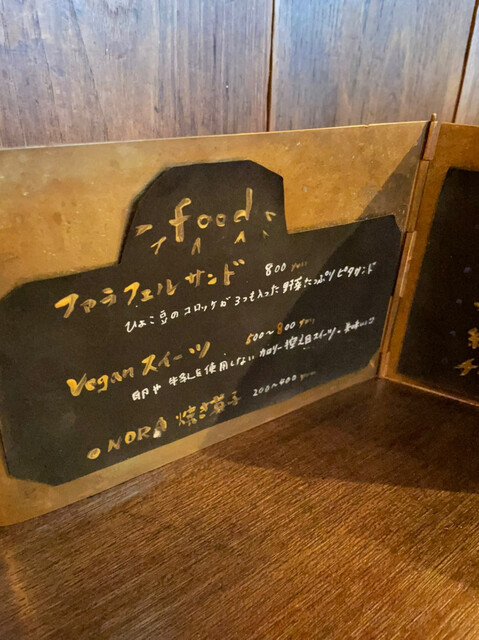 food
ファラフェルサンド 800 yen
ひよこ豆のコロッケが3つも入った野菜たっぷりピタサンド
Vegan スイーツ 500~800 yen
卵や牛乳を使用しないカロリー控え目スイーツ。美味しい
NORA 焼き菓子 200~400 yen